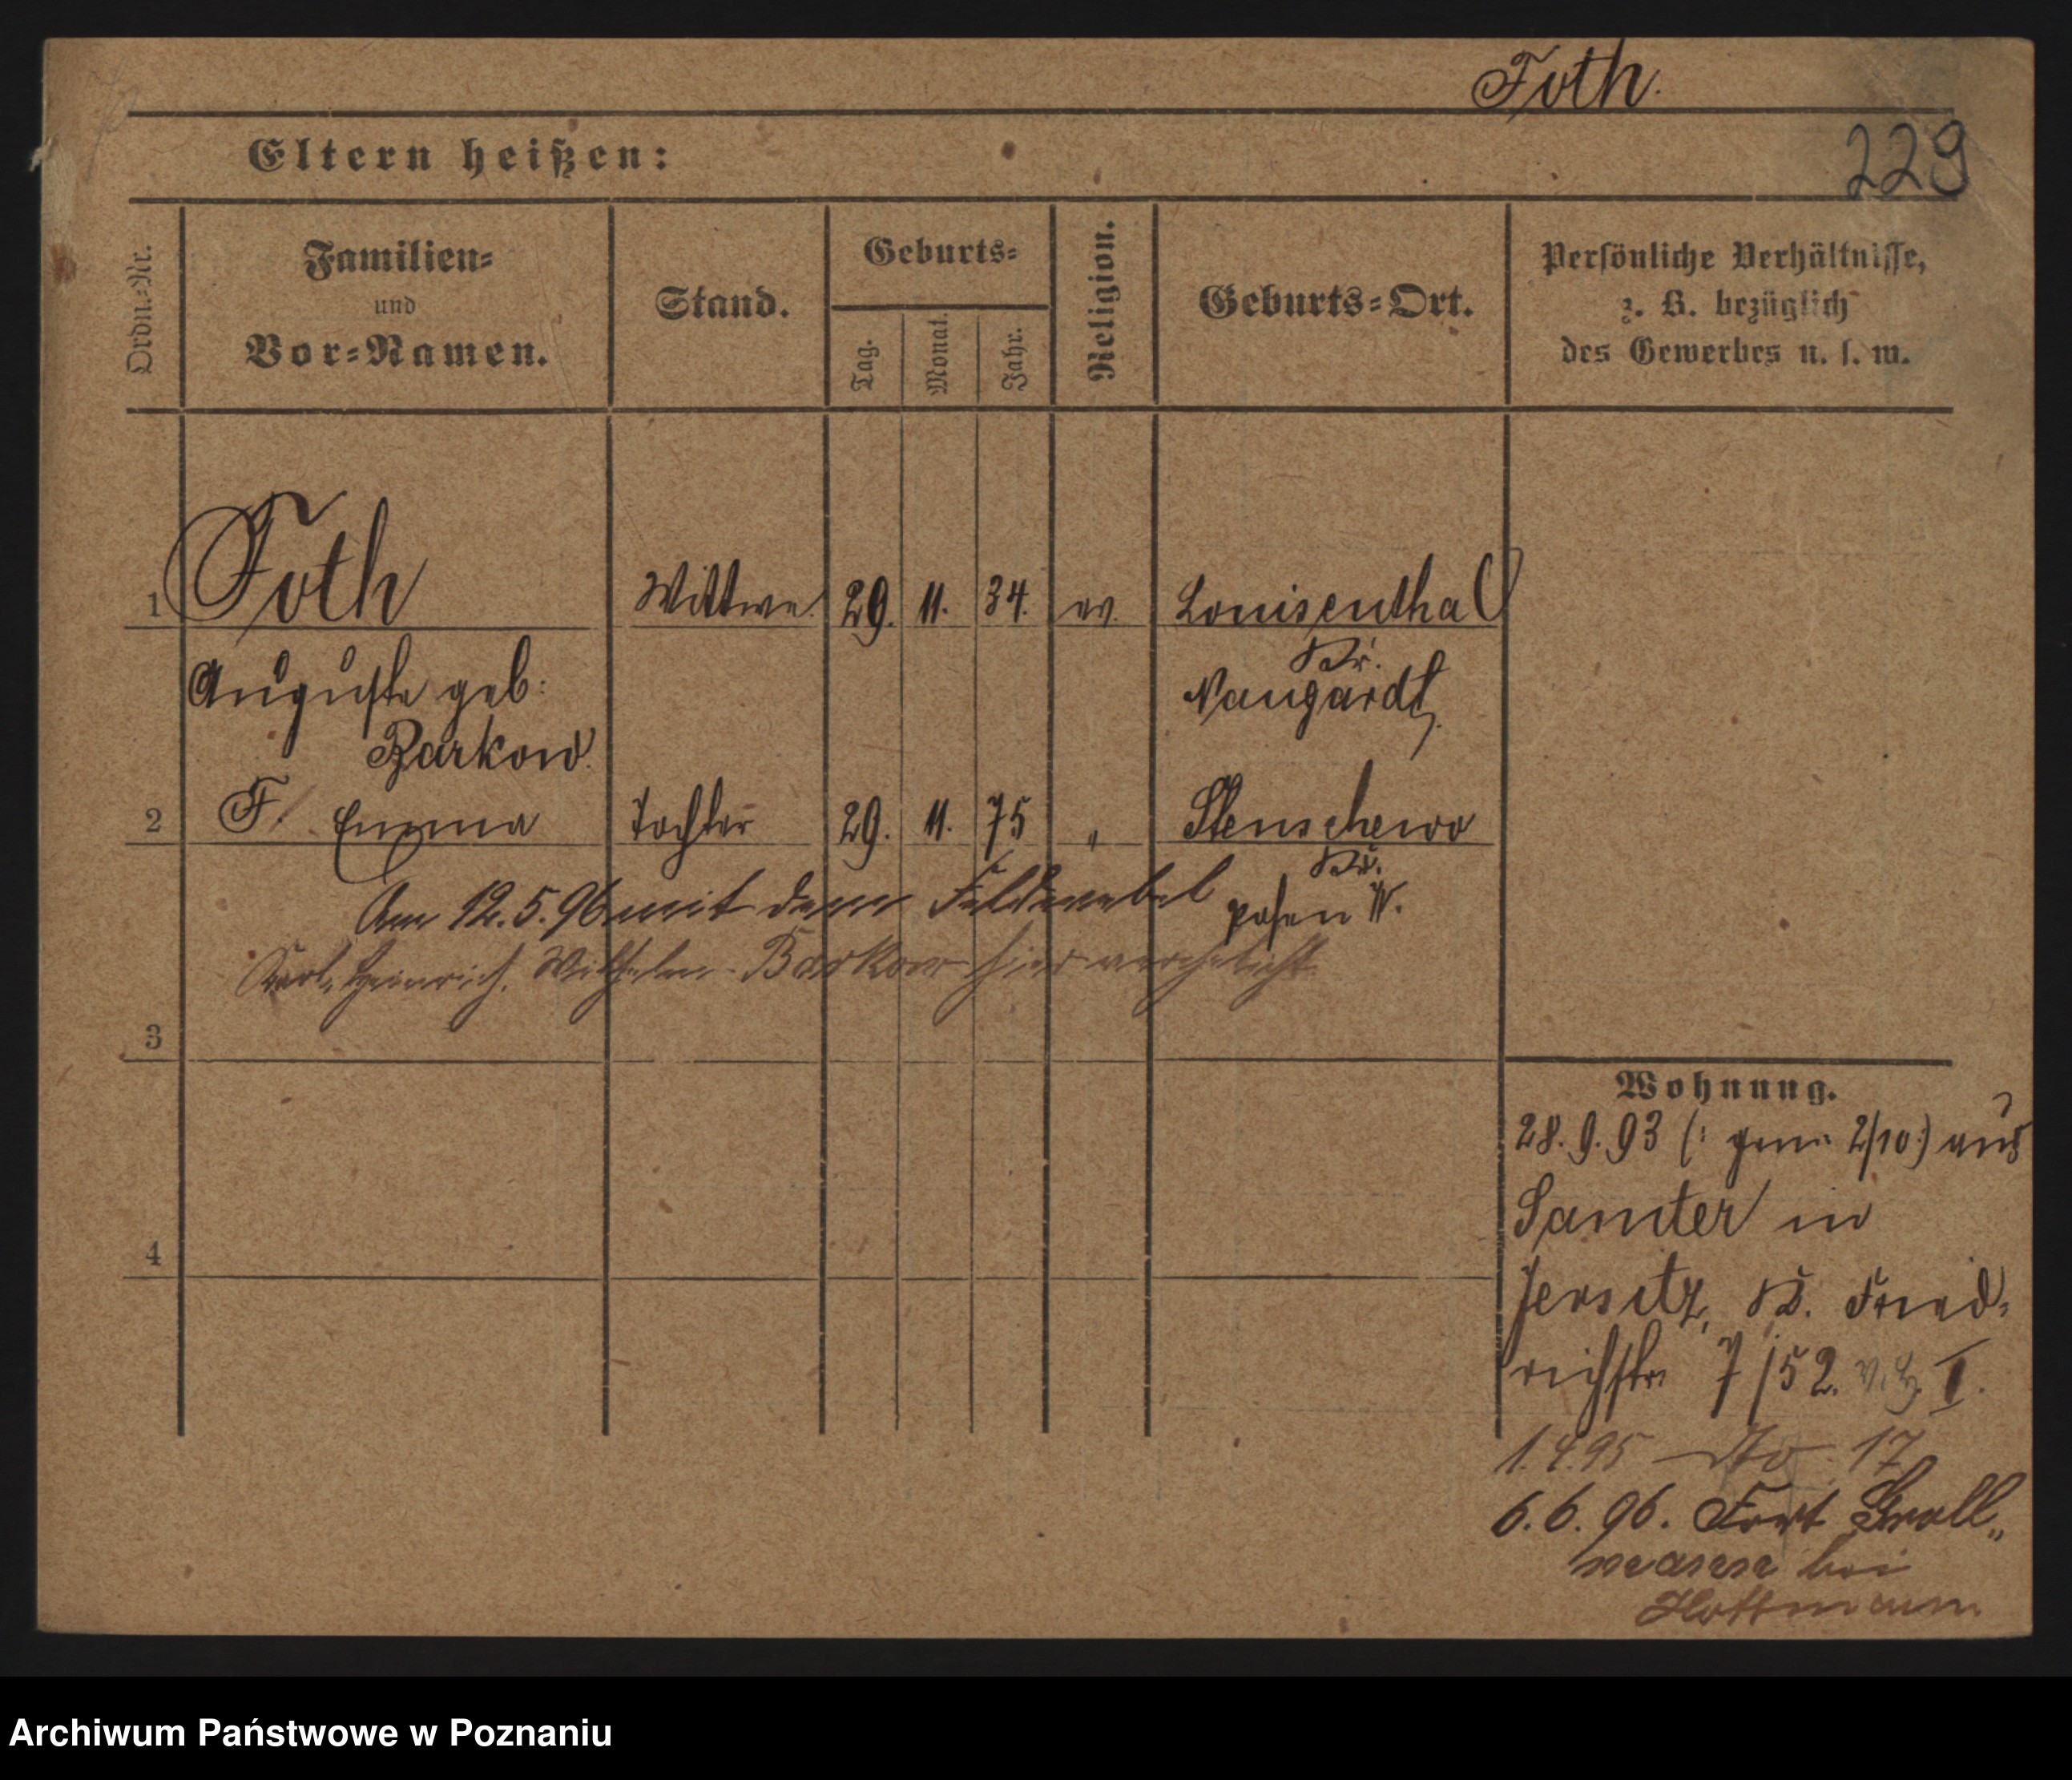 Foth.
229
Eltern heißen:
Ordn.-Nr.
Familien-
und
Vor-Namen.
Stand.
Geburts-
Tag.
Monat.
Jahr.
Religion.
Geburts-Ort.
Persönliche Verhältnisse,
z. B. bezüglich
des Gewerbes u. s. w.
1 Foth Wittwe 29. 11. 34. ev. Louisenthal
Kr.
Auguste geb: Naugardt,
Barkow.
2 F. Emma Tochter 29. 11. 75 " Stenschewo
Kr.
Posen W.
Am 12. 5. 96 mit dem Feldwebel
Karl, Heinrich, Wilhelm Barkow hier verehelicht
3
4
Wohnung.
28. 9. 93 (: gem: 2/10:) aus
Samter in
Jersitz, Kl. Fried-
richstr. 7/52. v. H. I.
1. 4. 95 dto 17
6. 6. 96. Fort Groll-
mann bei
Hoffmann
Archiwum Państwowe w Poznaniu